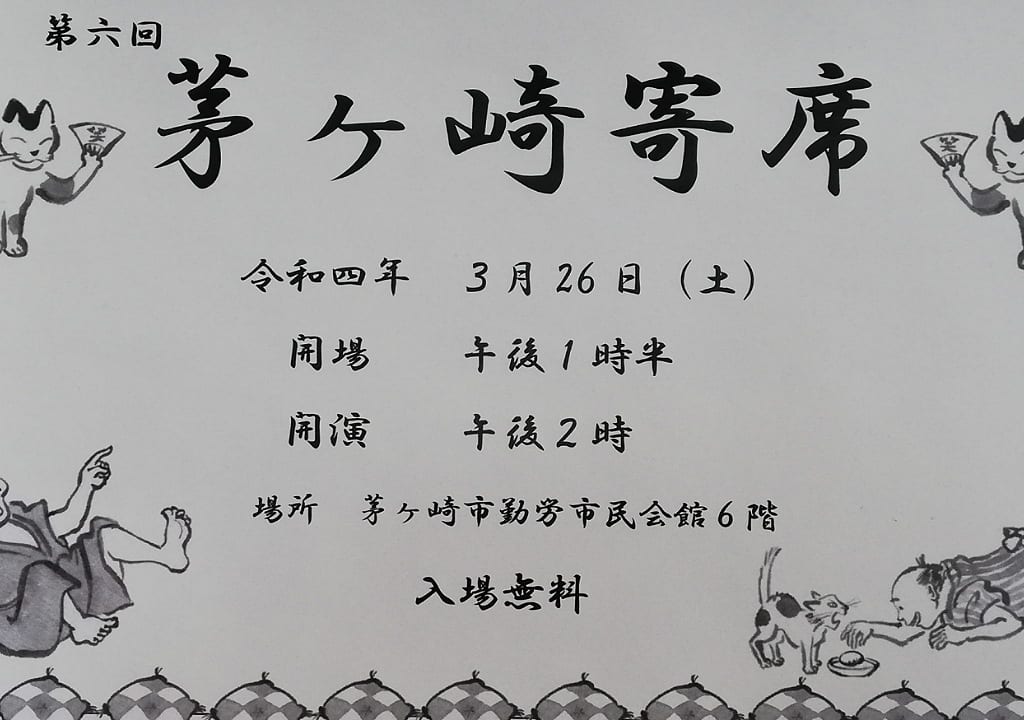 第六回
茅ヶ崎寄席
笑
笑
令和四年 3月26日（土）
開場 午後1時半
開演 午後2時
場所 茅ヶ崎市勤労市民会館6階
入場無料